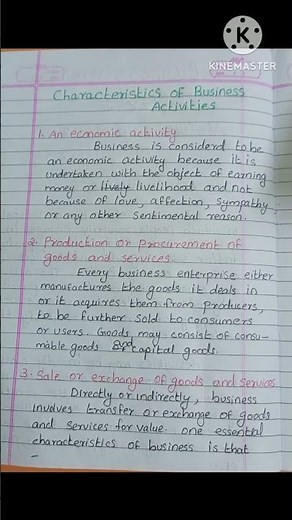 K
KINEMASTER
Characteristics of Business
Activities
1. An economic activity
Business is considerd to be
an economic activity because it is
undertaken with the object of earning
money or lively livelihood and not
because of love, affection, sympathy
or any other sentimental reason.
2. Production or Procurement of
goods and services.
Every business enterprise either
manufactures the goods it deals in
or it acquires them from producers,
to be further sold to consumers
or users. Goods may consist of consu-
mable goods or capital goods.
3. Sale or exchange of goods and services
Directly or indirectly, business
involves transfer or exchange of goods
and services for value. one essential
characteristics of business is that